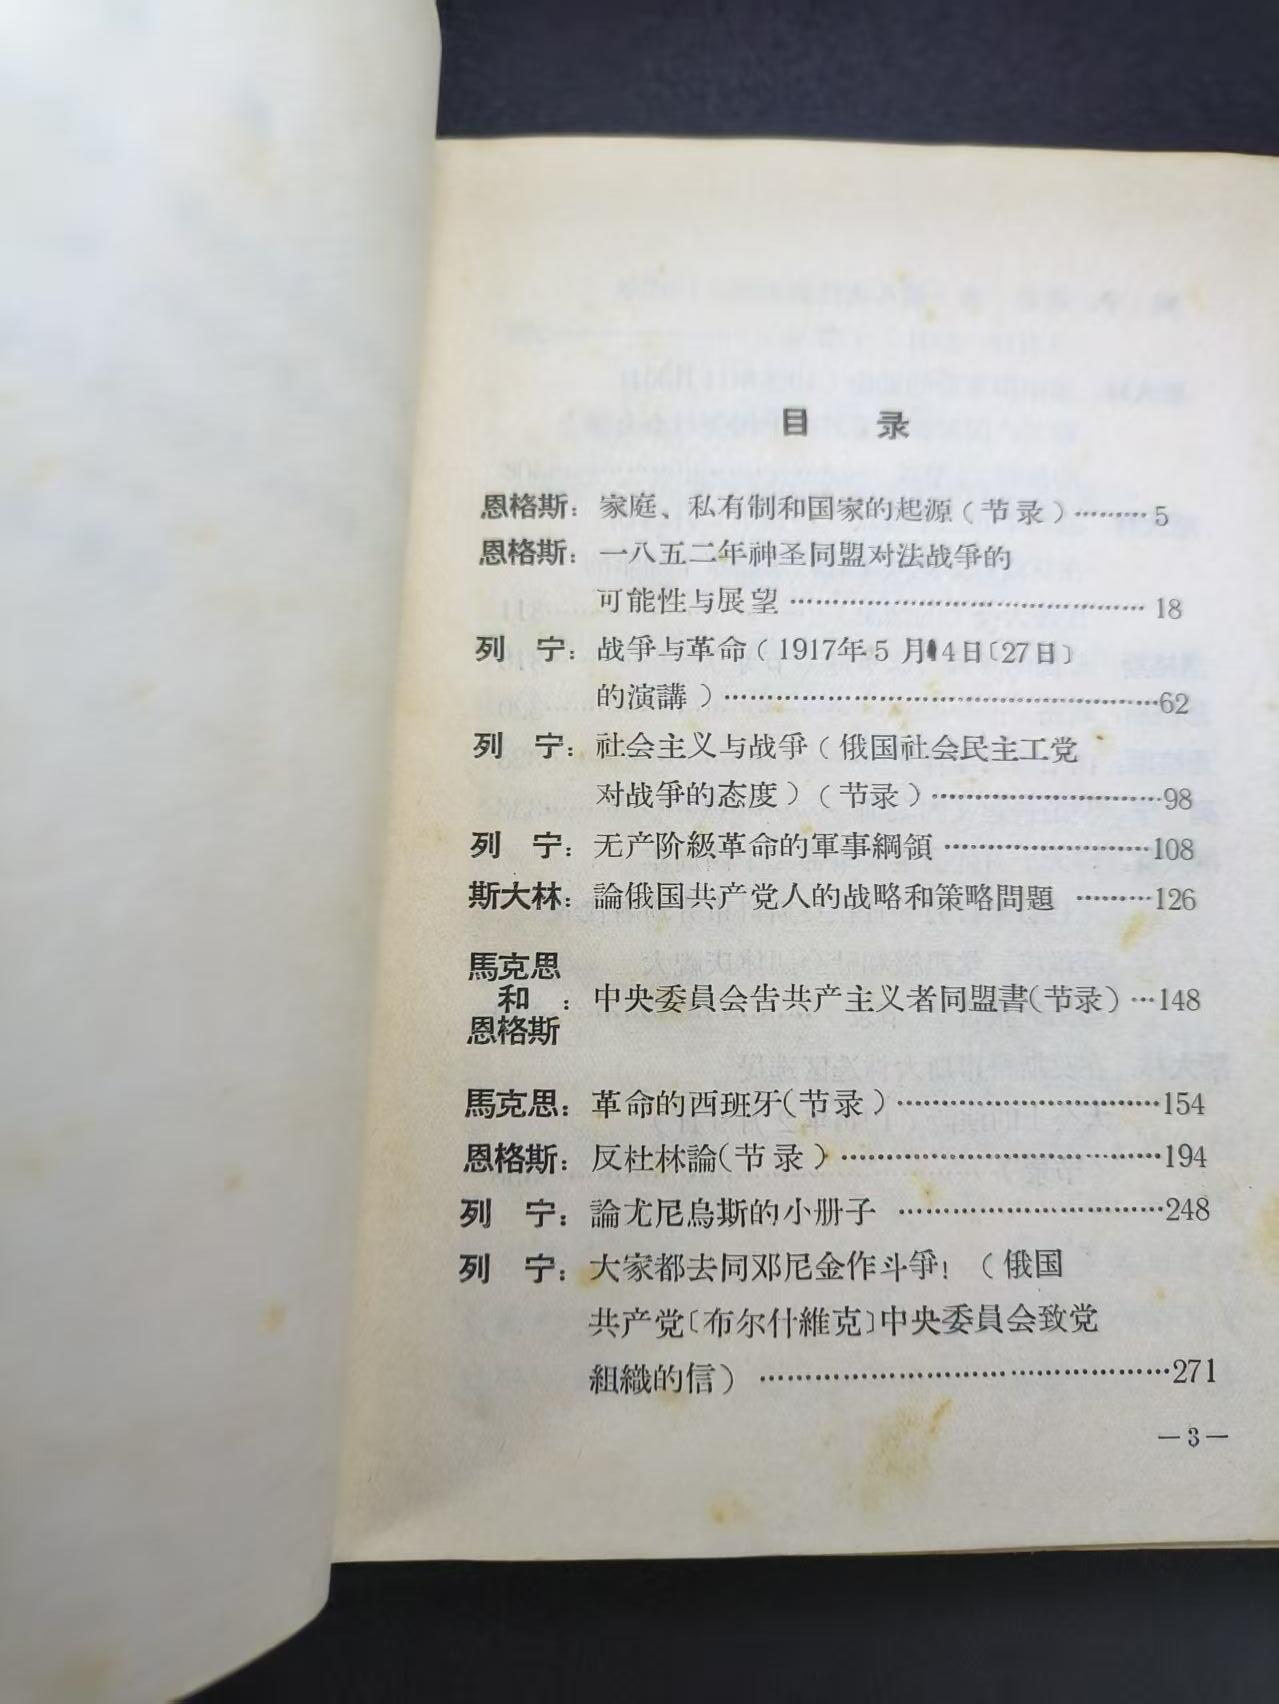 目 录
恩格斯：家庭、私有制和国家的起源（节录）………5
恩格斯：一八五二年神圣同盟对法战爭的
可能性与展望……………………………………18
列 宁：战爭与革命（1917年5月14日〔27日〕
的演講）………………………………………………62
列 宁：社会主义与战爭（俄国社会民主工党
对战爭的态度）（节录）…………………………98
列 宁：无产阶級革命的軍事綱領……………………108
斯大林：論俄国共产党人的战略和策略問題………126
馬克思
和：中央委員会告共产主义者同盟書（节录）…148
恩格斯
馬克思：革命的西班牙（节录）…………………………154
恩格斯：反杜林論（节录）………………………………194
列 宁：論尤尼烏斯的小册子…………………………248
列 宁：大家都去同邓尼金作斗爭！（俄国
共产党〔布尔什維克〕中央委員会致党
組織的信）…………………………………………271
—3—